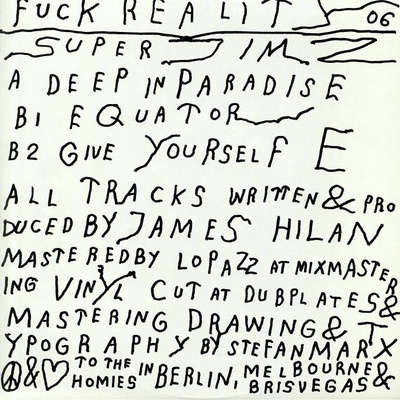 FUCK REALIT 06
SUPER JIM Z
A DEEP IN PARADISE
B1 EQUATOR
B2 GIVE YOURSELF E
ALL TRACKS WRITTEN & PRO
DUCED BY JAMES HILAN
MASTERED BY LOPAZZ AT MIXMASTER
ING VINYL CUT AT DUBPLATES &
MASTERING DRAWING & T
YPOGRAPHY BY STEFAN MARX
☮&♡ TO THE HOMIES IN BERLIN, MELBOURNE & BRISVEGAS &